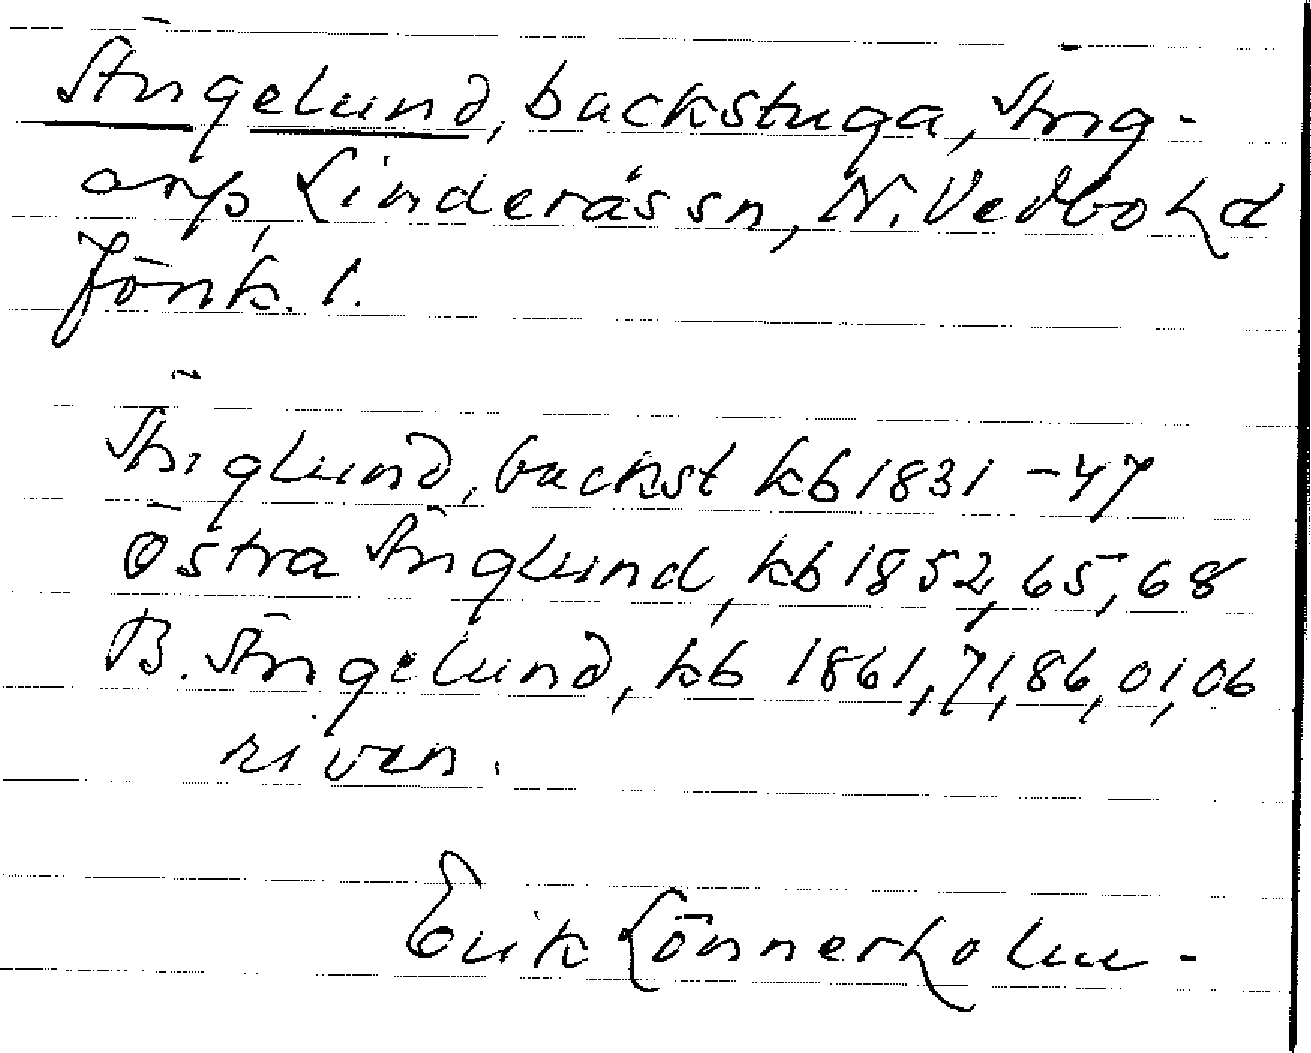 backstuga,
Linderås sn, N. Vedbo hd
Jönk. l.
backst kb 1831 - 47
Östra kb 1852, 65, 68
B. kb 1861, 71, 86, 01, 06
riven.
Erik Lönnerholm -